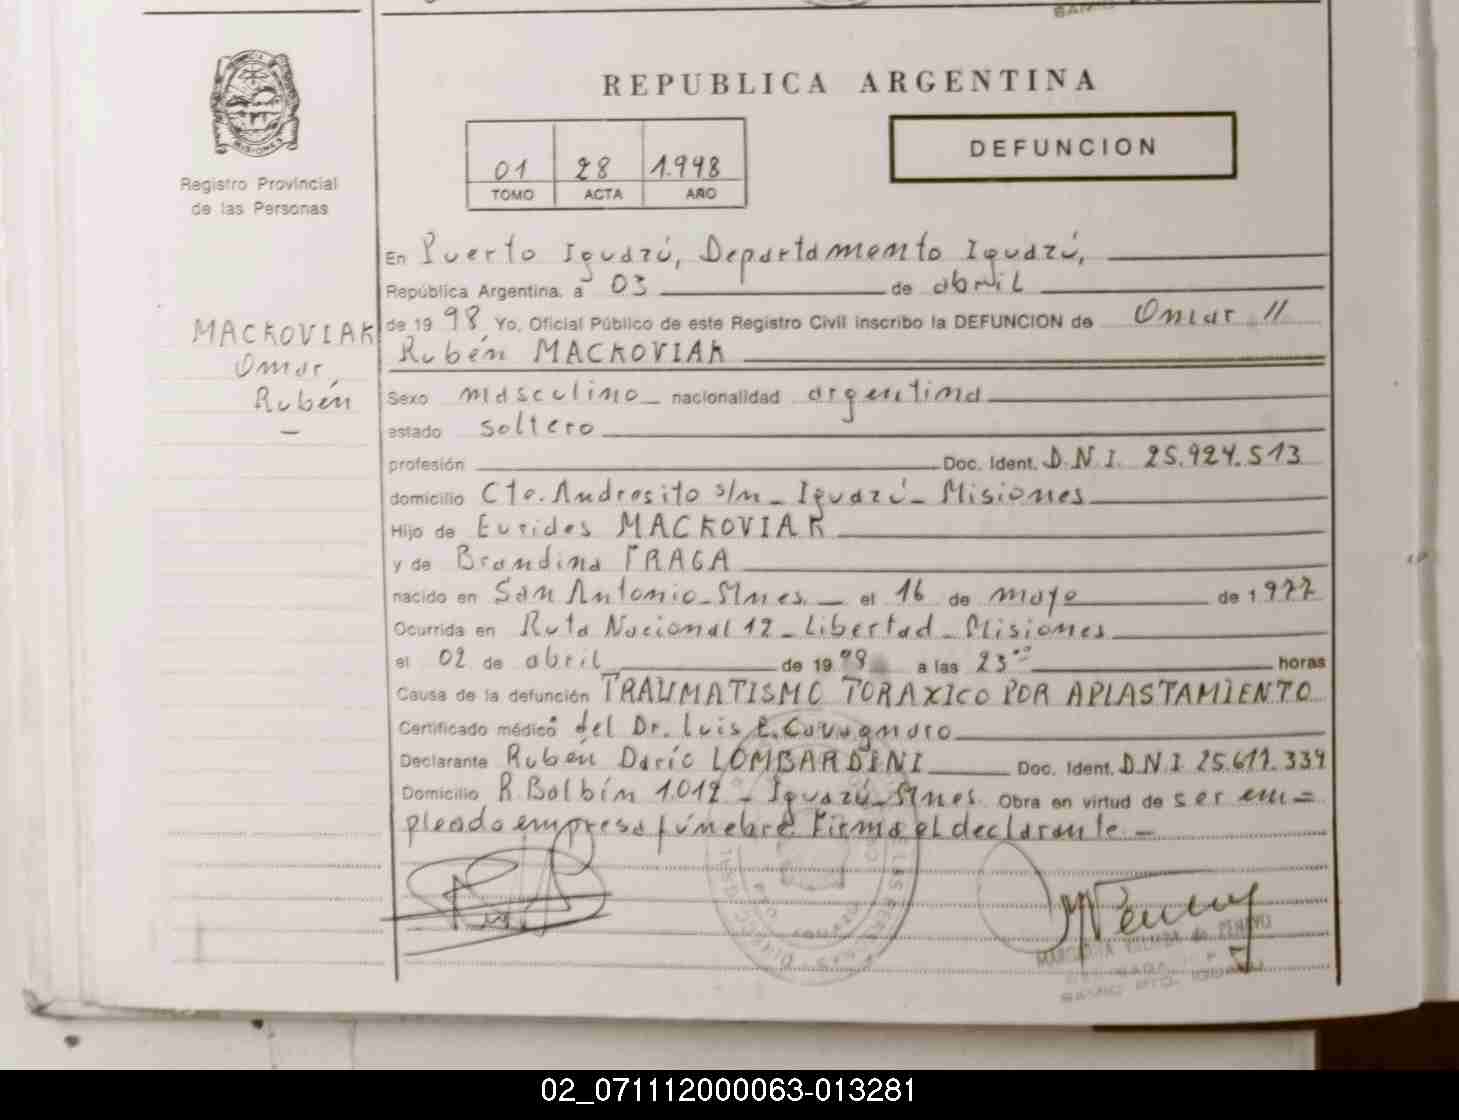 REPUBLICA ARGENTINA
01 28 1.998
TOMO ACTA AÑO
DEFUNCION
MISIONES
Registro Provincial
de las Personas
MACKOVIAK
Omar
Rubén
En Puerto Iguazú, Departamento Iguazú,
República Argentina, a 03 de abril
de 1998 Yo, Oficial Público de este Registro Civil inscribo la DEFUNCION de Omar //
Rubén MACKOVIAK
Sexo masculino nacionalidad argentina
estado soltero
profesión Doc. Ident. D.N.I. 25.924.513
domicilio Cte. Andresito s/n - Iguazú - Misiones
Hijo de Eurides MACKOVIAK
y de Brandina FRAGA
nacido en San Antonio - Mnes. el 16 de mayo de 1977
Ocurrida en Ruta Nacional 12 - Libertad - Misiones
el 02 de abril de 1998 a las 23 horas
Causa de la defunción TRAUMATISMO TORAXICO POR APLASTAMIENTO
Certificado médico del Dr. Luis E. Cavagnaro
Declarante Rubén Darío LOMBARDINI Doc. Ident. D.N.I. 25.611.334
Domicilio R. Balbín 1.012 - Iguazú - Mnes. Obra en virtud de ser em=
pleado empresa fúnebre Firma el declarante.-
02_071112000063-013281